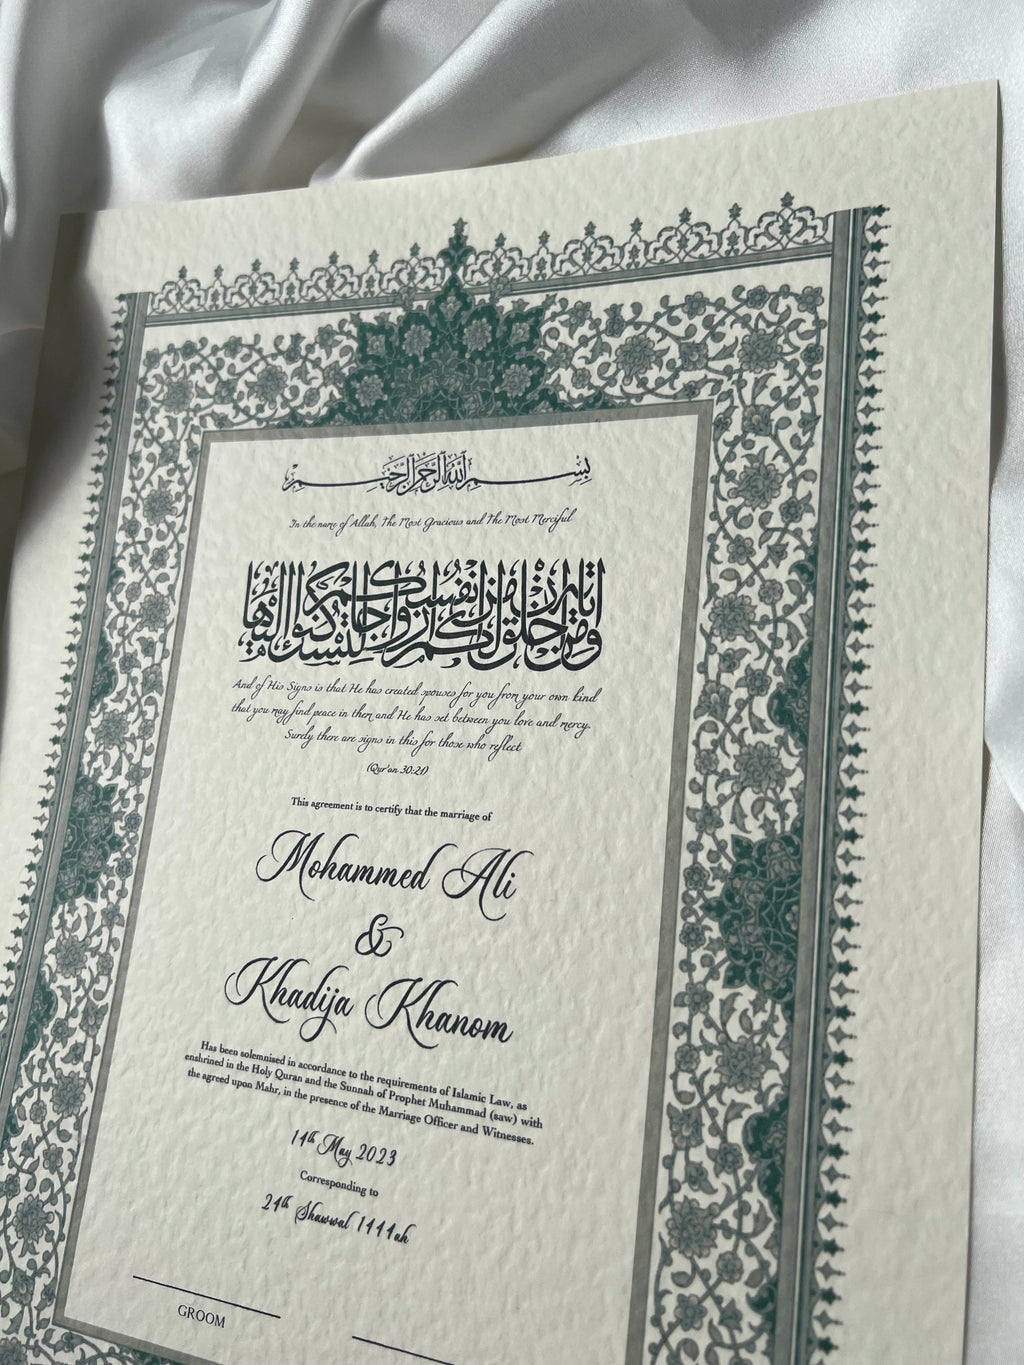 بسم الله الرحمن الرحيم
In the name of Allah, The Most Gracious and The Most Merciful
ومن آياته أن خلق لكم من أنفسكم أزواجا لتسكنوا إليها
And of His Signs is that He has created spouses for you from your own kind
that you may find peace in them and He has set between you love and mercy.
Surely there are signs in this for those who reflect
(Qur'an 30:21)
This agreement is to certify that the marriage of
Mohammed Ali
&
Khadija Khanom
Has been solemnised in accordance to the requirements of Islamic Law, as
enshrined in the Holy Quran and the Sunnah of Prophet Muhammad (saw) with
the agreed upon Mahr, in the presence of the Marriage Officer and Witnesses.
14th May 2023
Corresponding to
24th Shawwal 1444ah
GROOM